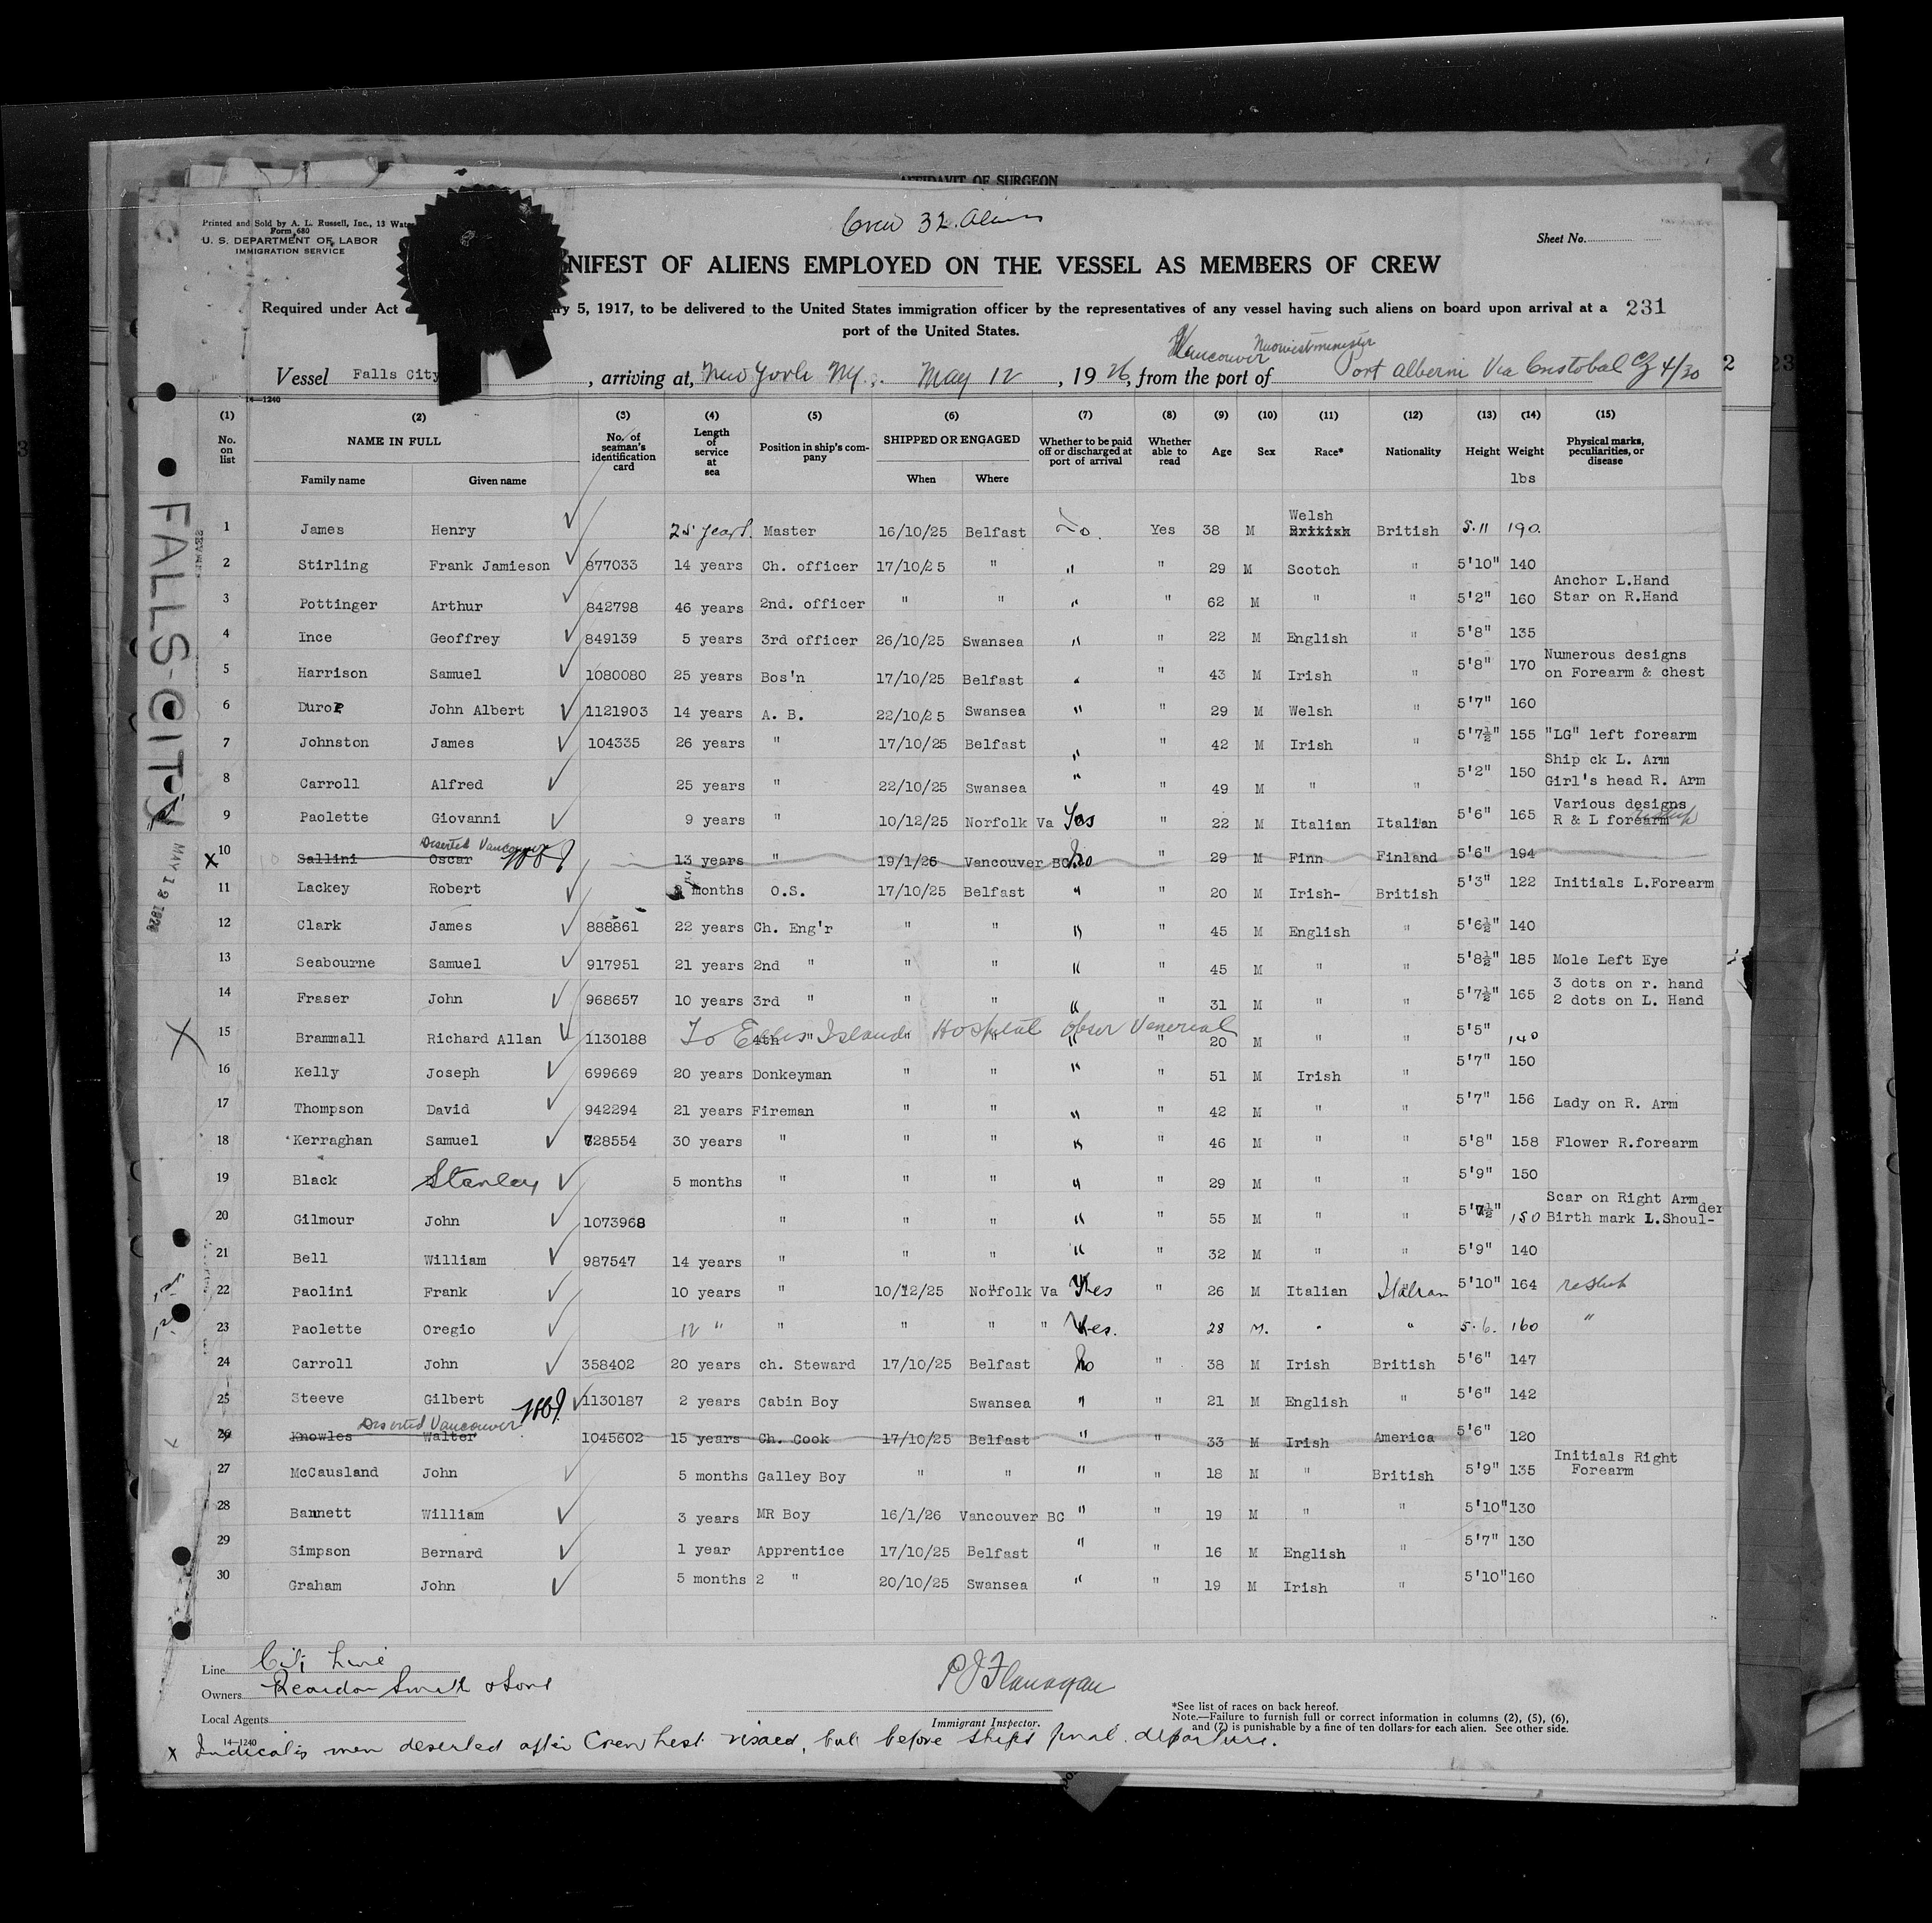 AFFIDAVIT OF SURGEON
Crew 32 Aliens
Printed and Sold by A. L. Russell, Inc., 13 Wat
Form 680
U. S. DEPARTMENT OF LABOR
IMMIGRATION SERVICE
Sheet No.
NIFEST OF ALIENS EMPLOYED ON THE VESSEL AS MEMBERS OF CREW
Required under Act ry 5, 1917, to be delivered to the United States immigration officer by the representatives of any vessel having such aliens on board upon arrival at a 231
port of the United States.
Vancouver Newwestminester
Vessel Falls City, arriving at, New York NY, May 12, 1926, from the port of Port Alberni Via Cristobal CZ 4/30
14-1240
(1) (2) (3) (4) (5) (6) (7) (8) (9) (10) (11) (12) (13) (14) (15)
No. on list NAME IN FULL No. of seaman's identification card Length of service at sea Position in ship's company SHIPPED OR ENGAGED Whether to be paid off or discharged at port of arrival Whether able to read Age Sex Race* Nationality Height Weight Physical marks, peculiarities, or disease
Family name Given name When Where lbs
FALLS CITY
MAY 12 1926
1 James Henry 25 years. Master 16/10/25 Belfast No. Yes 38 M Welsh British British 5.11 190.
2 Stirling Frank Jamieson 877033 14 years Ch. officer 17/10/25 " " " 29 M Scotch " 5'10" 140
3 Pottinger Arthur 842798 46 years 2nd. officer " " " " 62 M " " 5'2" 160 Anchor L.Hand Star on R.Hand
4 Ince Geoffrey 849139 5 years 3rd officer 26/10/25 Swansea " " 22 M English " 5'8" 135
5 Harrison Samuel 1080080 25 years Bos'n 17/10/25 Belfast " " 43 M Irish " 5'8" 170 Numerous designs on Forearm & chest
6 Duror John Albert 1121903 14 years A. B. 22/10/25 Swansea " " 29 M Welsh " 5'7" 160
7 Johnston James 104335 26 years " 17/10/25 Belfast " " 42 M Irish " 5'7½" 155 "LG" left forearm
8 Carroll Alfred 25 years " 22/10/25 Swansea " " 49 M " " 5'2" 150 Ship ck L. Arm Girl's head R. Arm
9 Paolette Giovanni 9 years " 10/12/25 Norfolk Va Yes " 22 M Italian Italian 5'6" 165 Various designs R & L forearm
Deserted Vancouver
x 10 Sallini Oscar 13 years " 19/1/26 Vancouver BC No " 29 M Finn Finland 5'6" 194
11 Lackey Robert months O.S. 17/10/25 Belfast " " 20 M Irish- British 5'3" 122 Initials L.Forearm
12 Clark James 888861 22 years Ch. Eng'r " " " " 45 M English " 5'6½" 140
13 Seabourne Samuel 917951 21 years 2nd " " " " " 45 M " " 5'8½" 185 Mole Left Eye
14 Fraser John 968657 10 years 3rd " " " " " 31 M " " 5'7½" 165 3 dots on r. hand 2 dots on L. Hand
To Ellis Island Hospital Obser Venerial
X 15 Brammall Richard Allan 1130188 4th " " " " " 20 M " " 5'5" 140
16 Kelly Joseph 699669 20 years Donkeyman " " " " 51 M Irish " 5'7" 150
17 Thompson David 942294 21 years Fireman " " " " 42 M " " 5'7" 156 Lady on R. Arm
18 Kerraghan Samuel 728554 30 years " " " " " 46 M " " 5'8" 158 Flower R.forearm
19 Black Stanley 5 months " " " " " 29 M " " 5'9" 150
20 Gilmour John 1073968 " " " " " 55 M " " 5'7½" 150 Scar on Right Arm Birth mark L.Shoul-der
21 Bell William 987547 14 years " " " " " 32 M " " 5'9" 140
22 Paolini Frank 10 years " 10/12/25 Norfolk Va Yes " 26 M Italian Italian 5'10" 164 reship
23 Paolette Oregio 12 " " " " " Yes. 28 M. " " 5.6. 160 "
24 Carroll John 358402 20 years ch. Steward 17/10/25 Belfast No " 38 M Irish British 5'6" 147
25 Steeve Gilbert 1130187 2 years Cabin Boy Swansea " " 21 M English " 5'6" 142
Deserted Vancouver
26 Knowles Walter 1045602 15 years Ch. Cook 17/10/25 Belfast " " 33 M Irish America 5'6" 120
27 McCausland John 5 months Galley Boy " " " " 18 M " British 5'9" 135 Initials Right Forearm
28 Bannett William 3 years MR Boy 16/1/26 Vancouver BC " " 19 M " " 5'10" 130
29 Simpson Bernard 1 year Apprentice 17/10/25 Belfast " " 16 M English " 5'7" 130
30 Graham John 5 months 2 " 20/10/25 Swansea " " 19 M Irish " 5'10" 160
Line City Line
Owners Reardon Smith & Sons
Local Agents
P J Flanagan
Immigrant Inspector.
*See list of races on back hereof.
Note.—Failure to furnish full or correct information in columns (2), (5), (6),
and (7) is punishable by a fine of ten dollars for each alien. See other side.
14-1240
x Indicates men deserted after Crew List visaed, but before ships final departure.